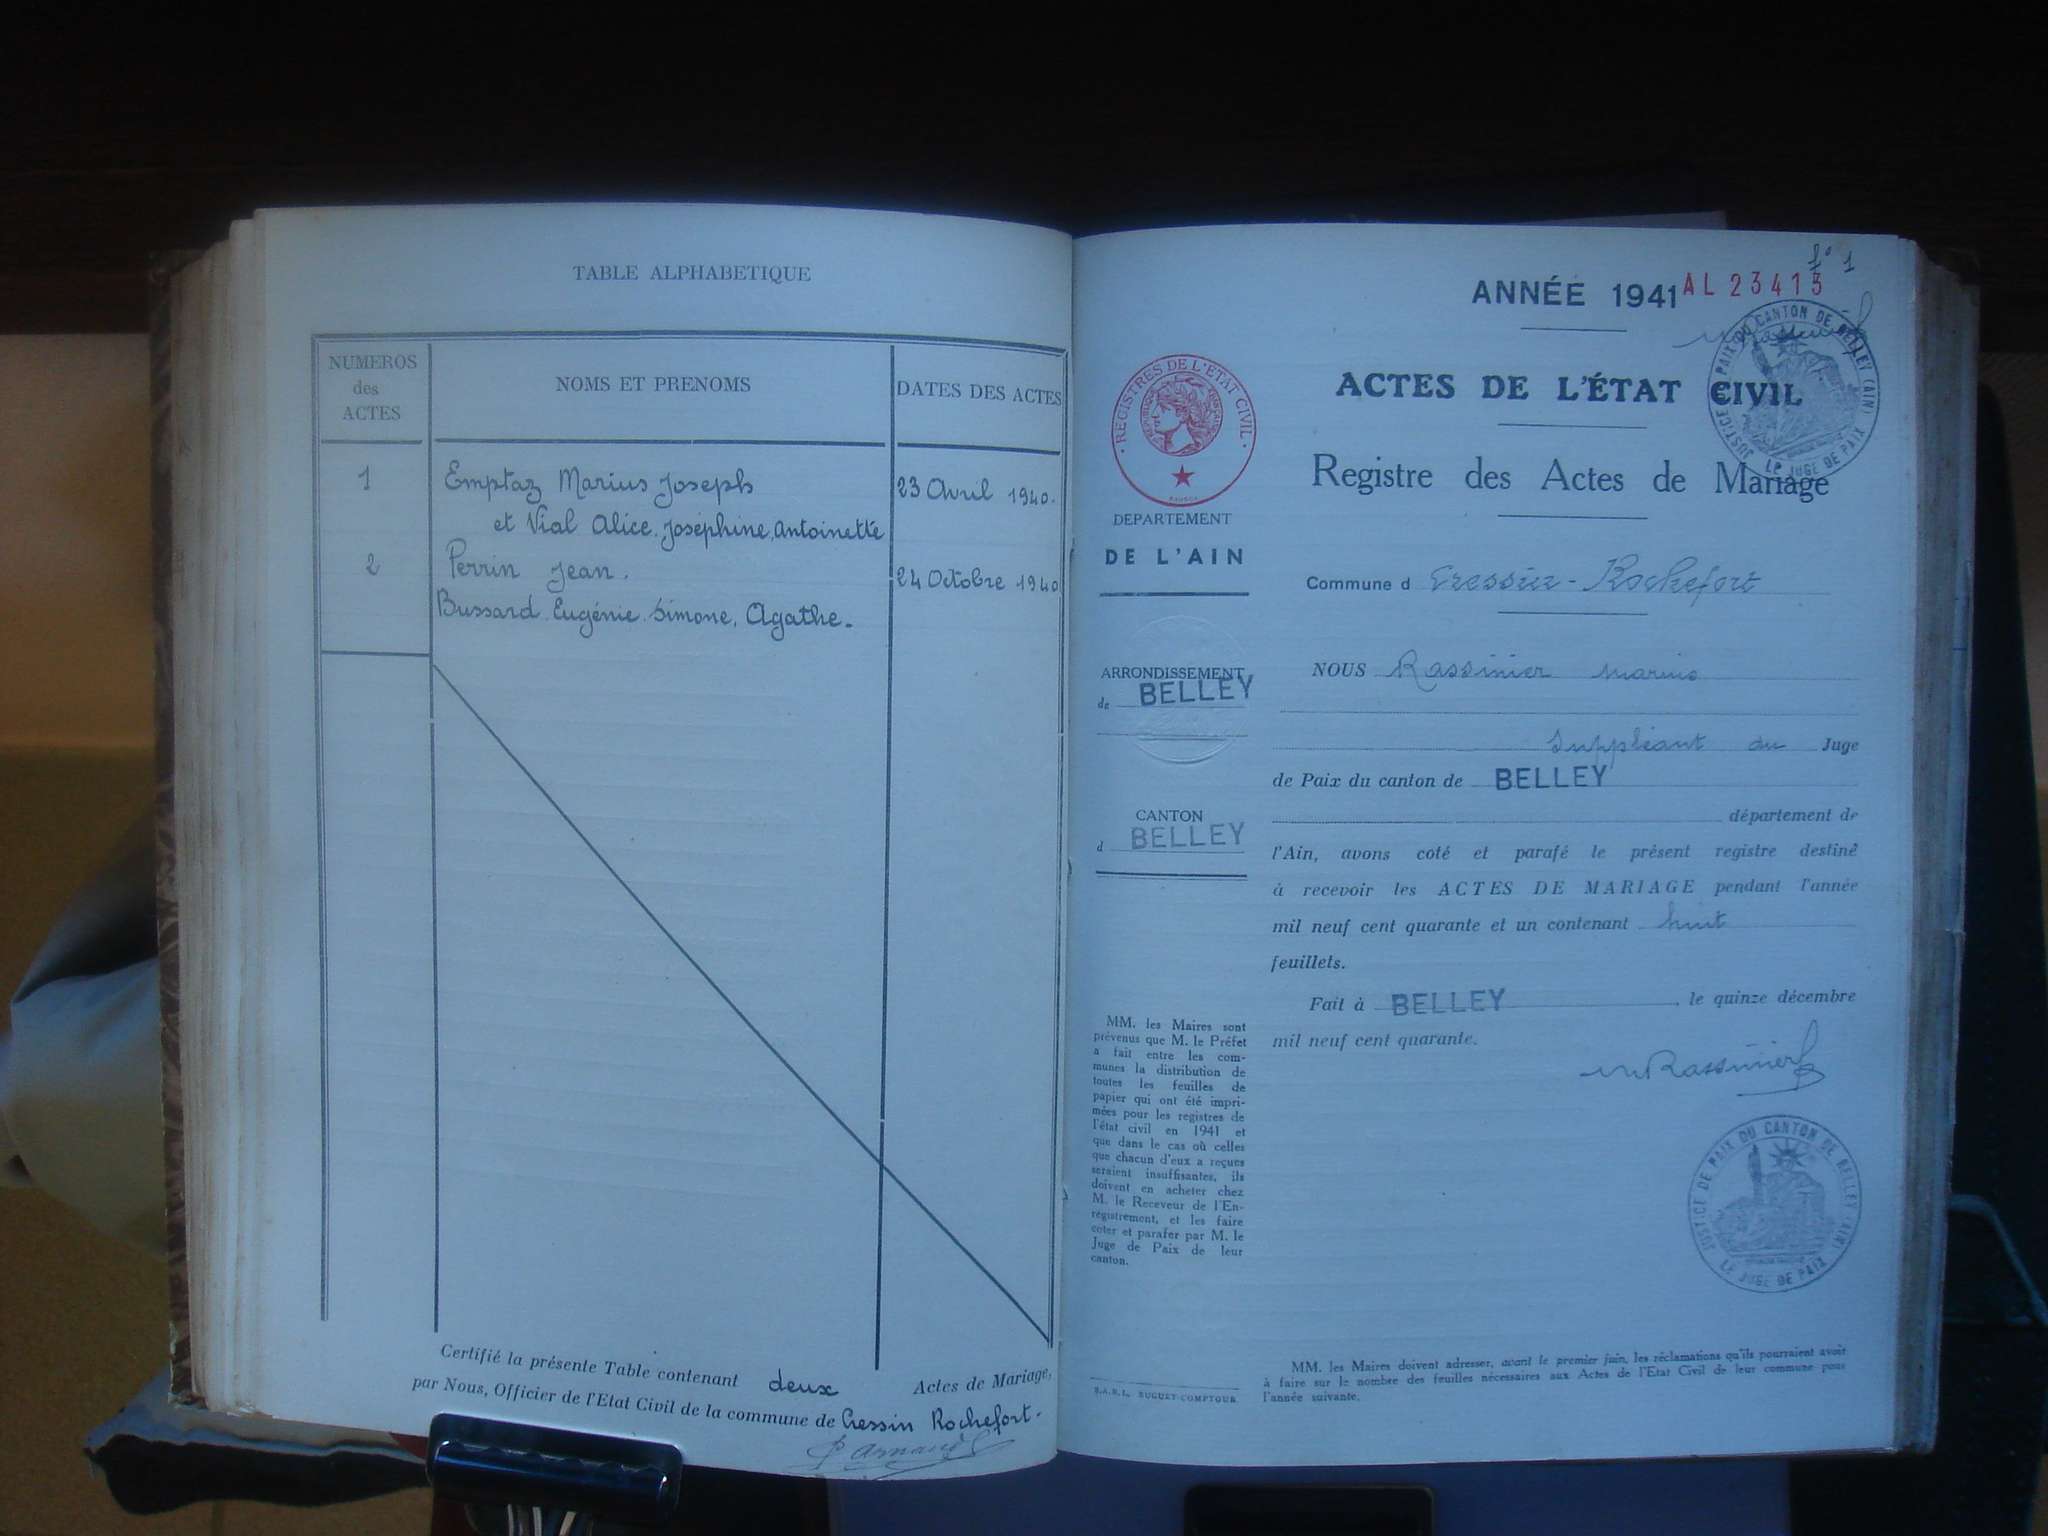 TABLE ALPHABETIQUE
NUMEROS
des
ACTES
NOMS ET PRENOMS
DATES DES ACTES
1
Emptaz Marius Joseph
23 Avril 1940.
et Vial Alice, Joséphine, Antoinette
2
Perrin Jean.
24 Octobre 1940
Bussard Eugénie Simone, Agathe.
Certifié la présente Table contenant deux Actes de Mariage,
par Nous, Officier de l'Etat Civil de la commune de Cressin Rochefort.
P Arnaud
fo 1
ANNÉE 1941
AL 23413
JUSTICE DE PAIX DU CANTON DE BELLEY (AIN)
LE JUGE DE PAIX
REGISTRES DE L'ÉTAT CIVIL
RÉPUBLIQUE FRANÇAISE
ACTES DE L'ÉTAT CIVIL
Registre des Actes de Mariage
DEPARTEMENT
DE L'AIN
Commune d Cressin-Rochefort
ARRONDISSEMENT
de BELLEY
CANTON
d BELLEY
NOUS Rassinier Marius
Suppléant du Juge
de Paix du canton de BELLEY
département de
l'Ain, avons coté et parafé le présent registre destiné
à recevoir les ACTES DE MARIAGE pendant l'année
mil neuf cent quarante et un contenant huit
feuillets.
Fait à BELLEY, le quinze décembre
mil neuf cent quarante.
M Rassinier
JUSTICE DE PAIX DU CANTON DE BELLEY (AIN)
LE JUGE DE PAIX
MM. les Maires sont
prévenus que M. le Préfet
a fait entre les com-
munes la distribution de
toutes les feuilles de
papier qui ont été impri-
mées pour les registres de
l'état civil en 1941 et
que dans le cas où celles
que chacun d'eux a reçues
seraient insuffisantes, ils
doivent en acheter chez
M. le Receveur de l'En-
registrement, et les faire
coter et parafer par M. le
Juge de Paix de leur
canton.
S.A.R.L. BUGUET-COMPTOUR
MM. les Maires doivent adresser, avant le premier juin, les réclamations qu'ils pourraient avoir
à faire sur le nombre des feuilles nécessaires aux Actes de l'Etat Civil de leur commune pour
l'année suivante.